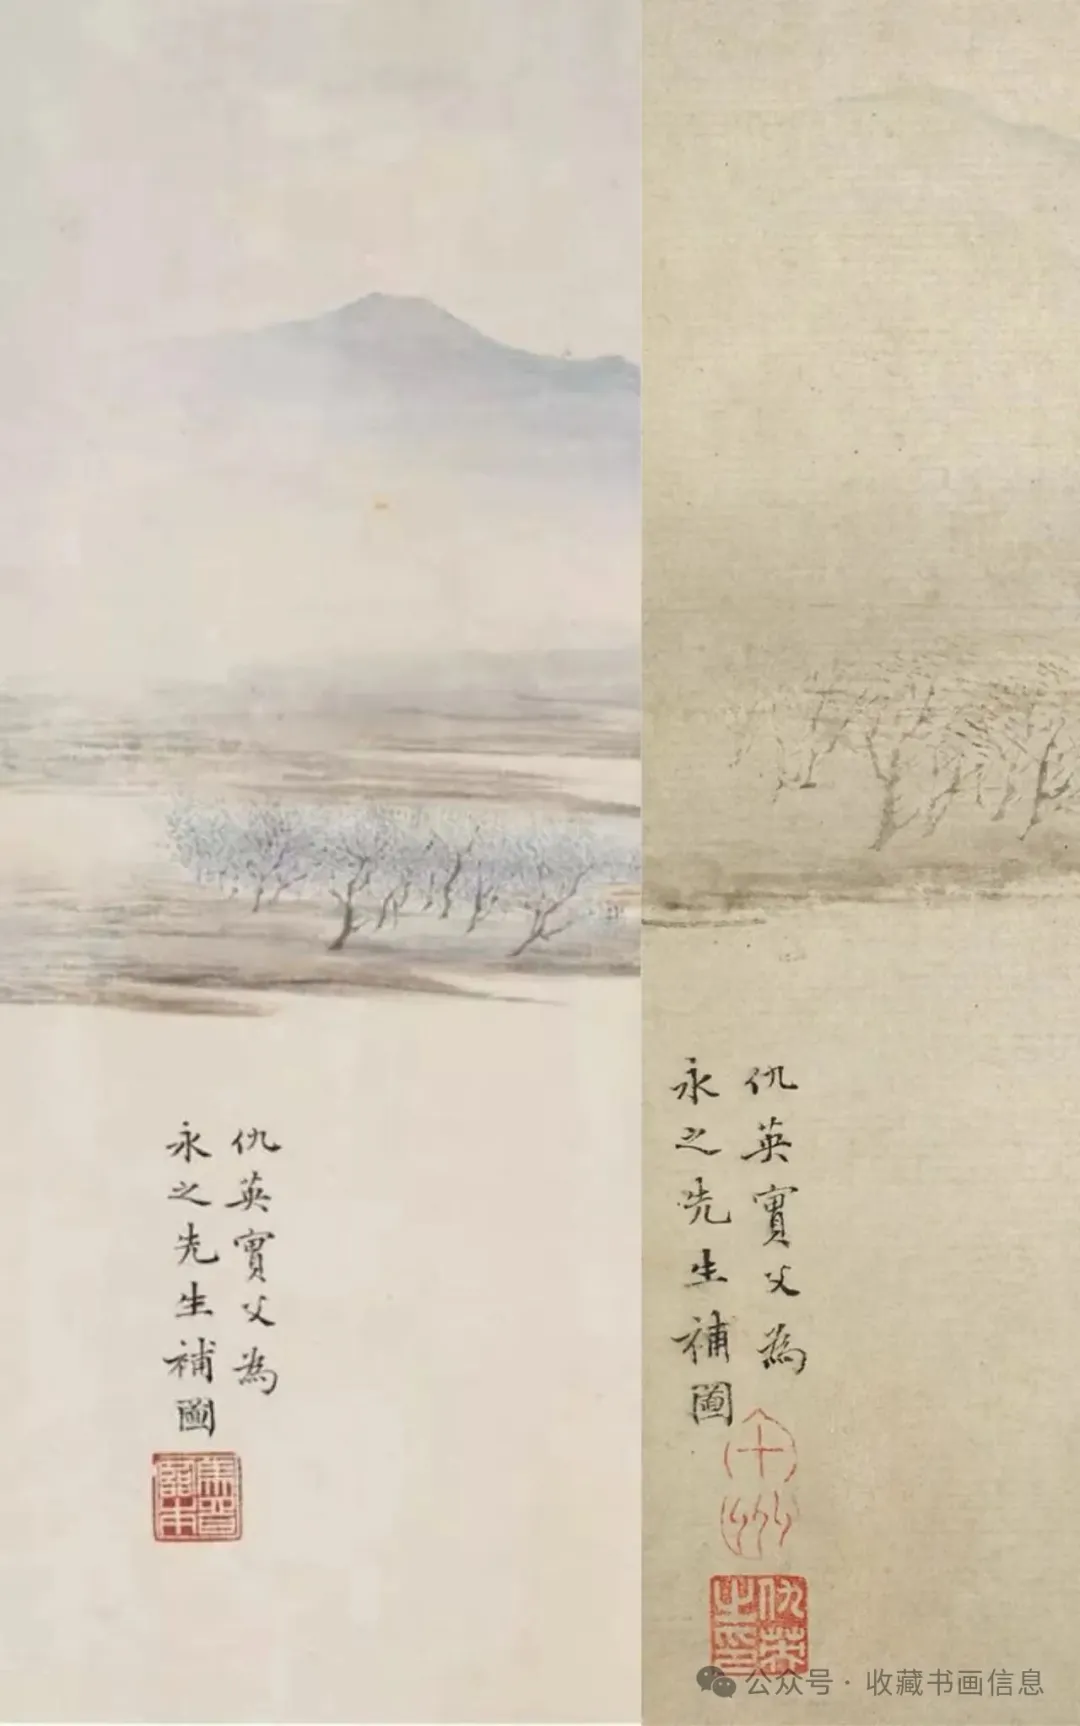 仇英實父為
永之先生補圖
仇英實父為
永之先生補圖
十洲
仇英之印
公众号 · 收藏书画信息